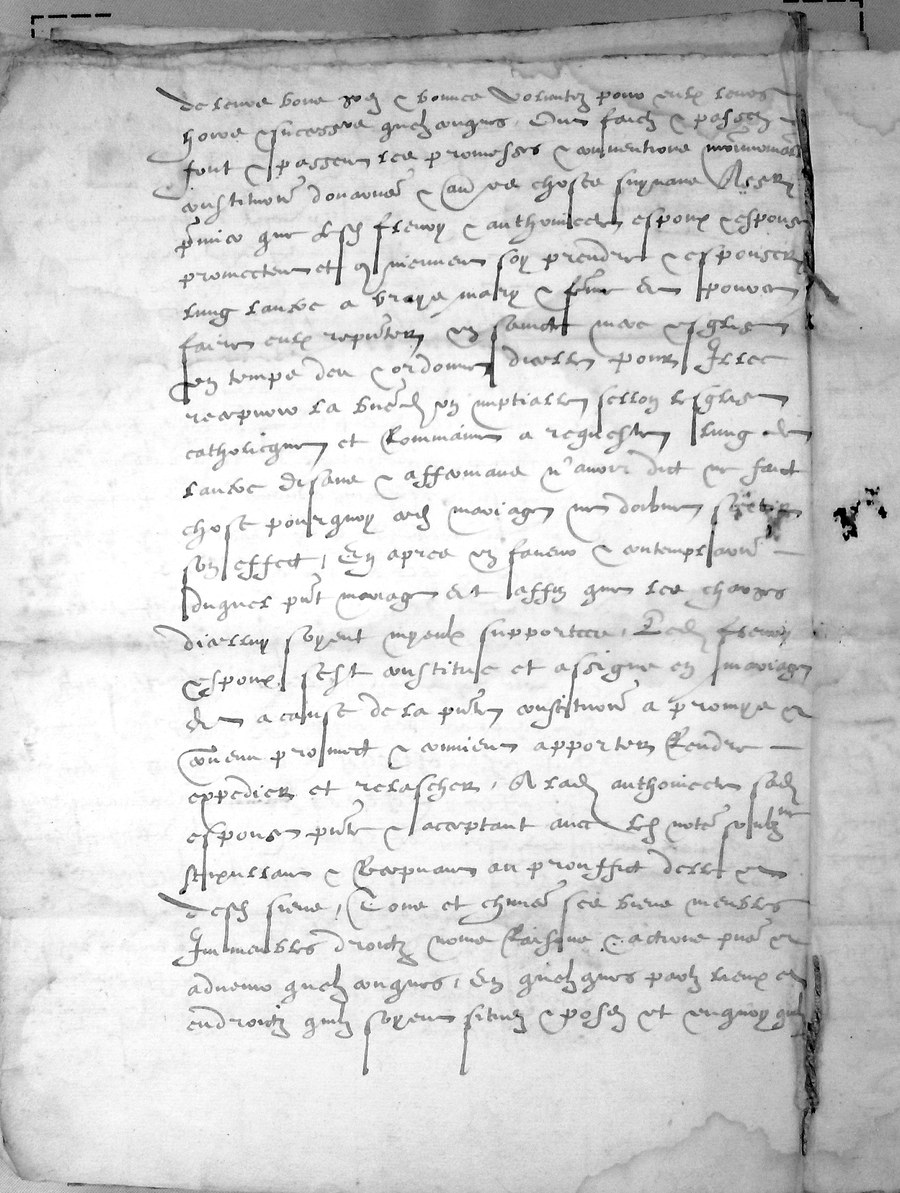 de leurs bons grez & bonnes voluntez pour eulx leurs
hoirs & successrs quelzconques Ont faictz & passez
font & passent les promesses & conventions
constitutions donations & aultres choses suyvans Assr
pmier que lesd Fleury & anthoinette espoux & espouse
promectent et soy prendre & espouser
lung laultre a vrays mary & feme et pouvoir
faire eulx reputer en saincte mere esglise
en temps deu & ordonne dicelle pour Illec
recepvoir la bened on nuptialle sellon lesglise
catholicque et Rommaine a requeste lung de
laultre disans & affermans n'avoir dict ne faict
chose pourquoy ced mariage ne doibve sortir
son effect, En apres en faveur & contemplaon
duquel pnt mariage et affin que les charges
dicelluy soyent myeulx supportees, Led Fleury
espoux sest constitue et assigne en mariage
et a cause de la pnte constituon a promys &
convenu promect & convient apporter Rendre
expedier et relascher, A lad anthoinette sad
espouse pnte & acceptant avec les notes soubz
stipullans & Recepvans au prouffict delle &
des siens, Tous et chuns ses biens meubles
Immeubles droictz noms Raisons & actions pns &
advenir quelzconques, En quelzques partz lieux et
endroictz quilz soyent situez & posez et enquoy quilz